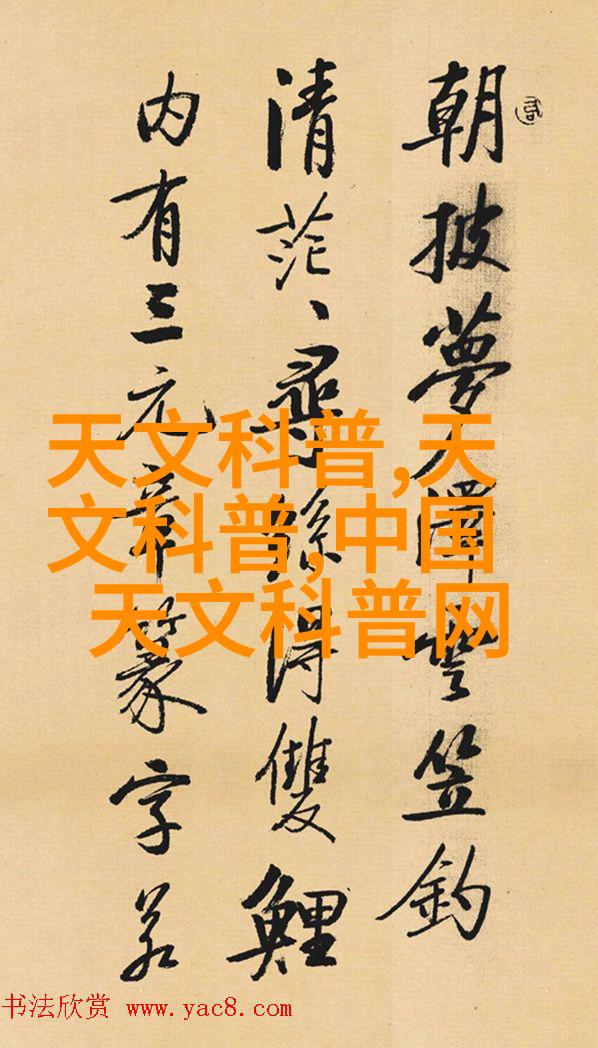 朝披夢澤雲笠釣
清茫、尋絲得雙鯉
内有三元章篆字若
天文科普,天
文科普,中国
天文科普网
书法欣赏 www.yac8.com